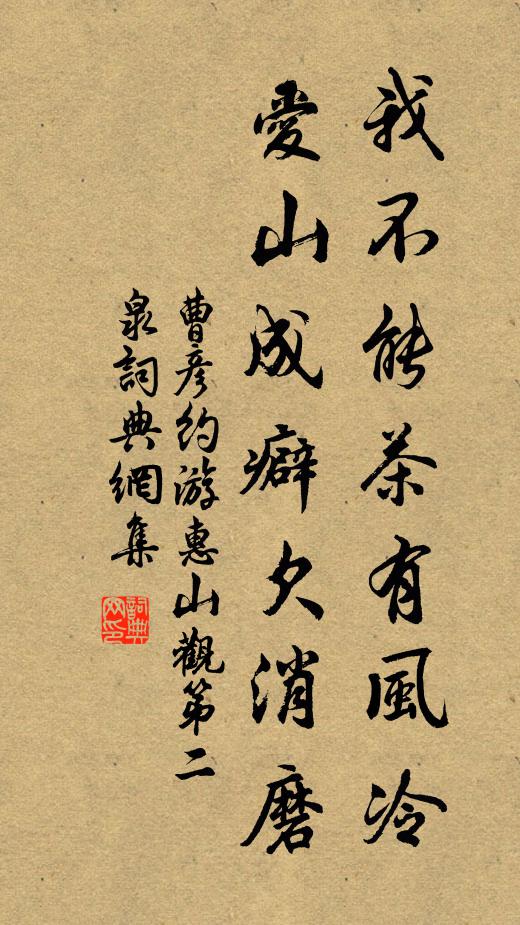 我不能茶有風冷
愛山成癖欠消磨
曹彥約游惠山觀第二
泉詞典網集
詞典网印